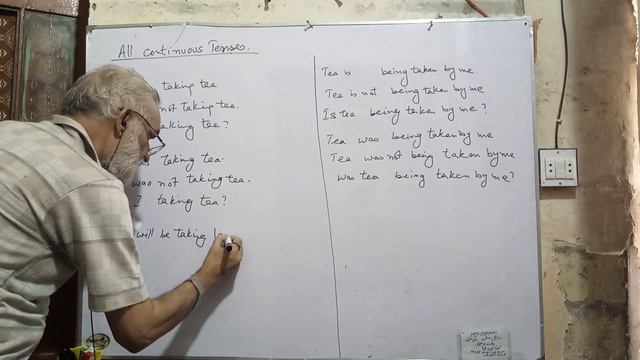 All continuous Tenses.
taking tea
not taking tea.
taking tea?
taking tea.
was not taking tea.
I taking tea?
will be taking
Tea is being taken by me.
Tea is not being take by me
Is tea being taken by me?
Tea was being taken by me.
Tea was not being taken by me
was tea being taken by me?